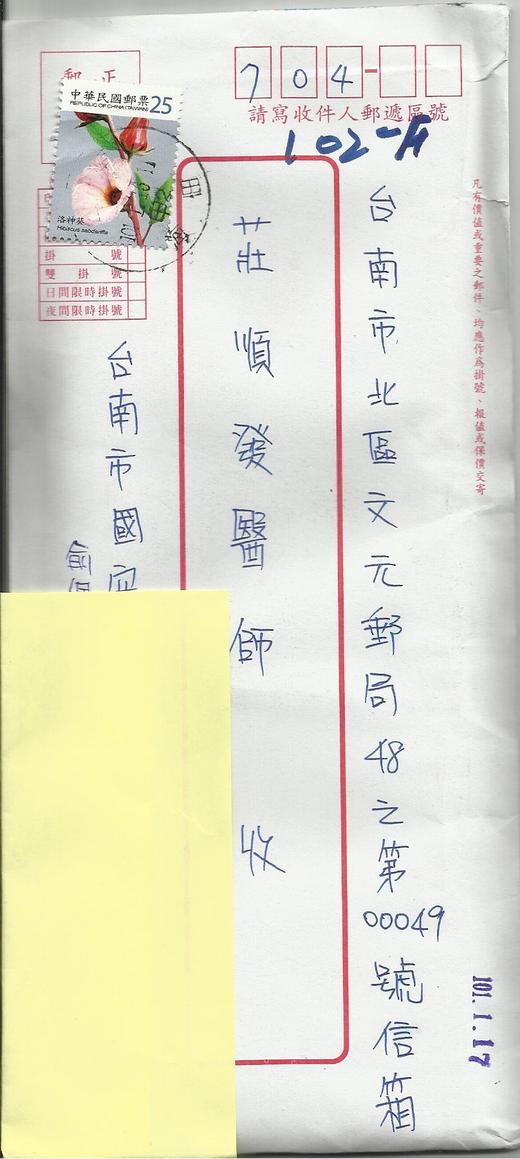 704
請寫收件人郵遞區號
102-A
中華民國郵票 25
REPUBLIC OF CHINA (TAIWAN)
洛神葵
Hibiscus sabdariffa
掛號
雙掛號
日間限時掛號
夜間限時掛號
凡有價值或重要之郵件、均應作為掛號、報值或保價交寄
台南市北區文元郵局48之第00049號信箱
莊順發醫師 收
台南市國
俞
101.1.17